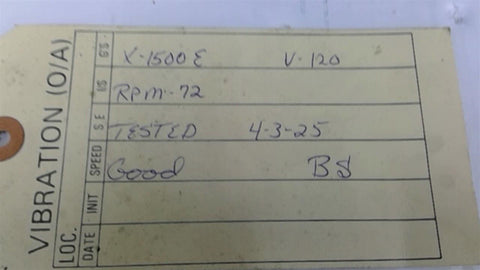 VIBRATION (O/A)
LOC.
DATE INIT SPEED S E I/S G'S
X-1500 E V-120
RPM-72
TESTED 4-3-25
Good BS